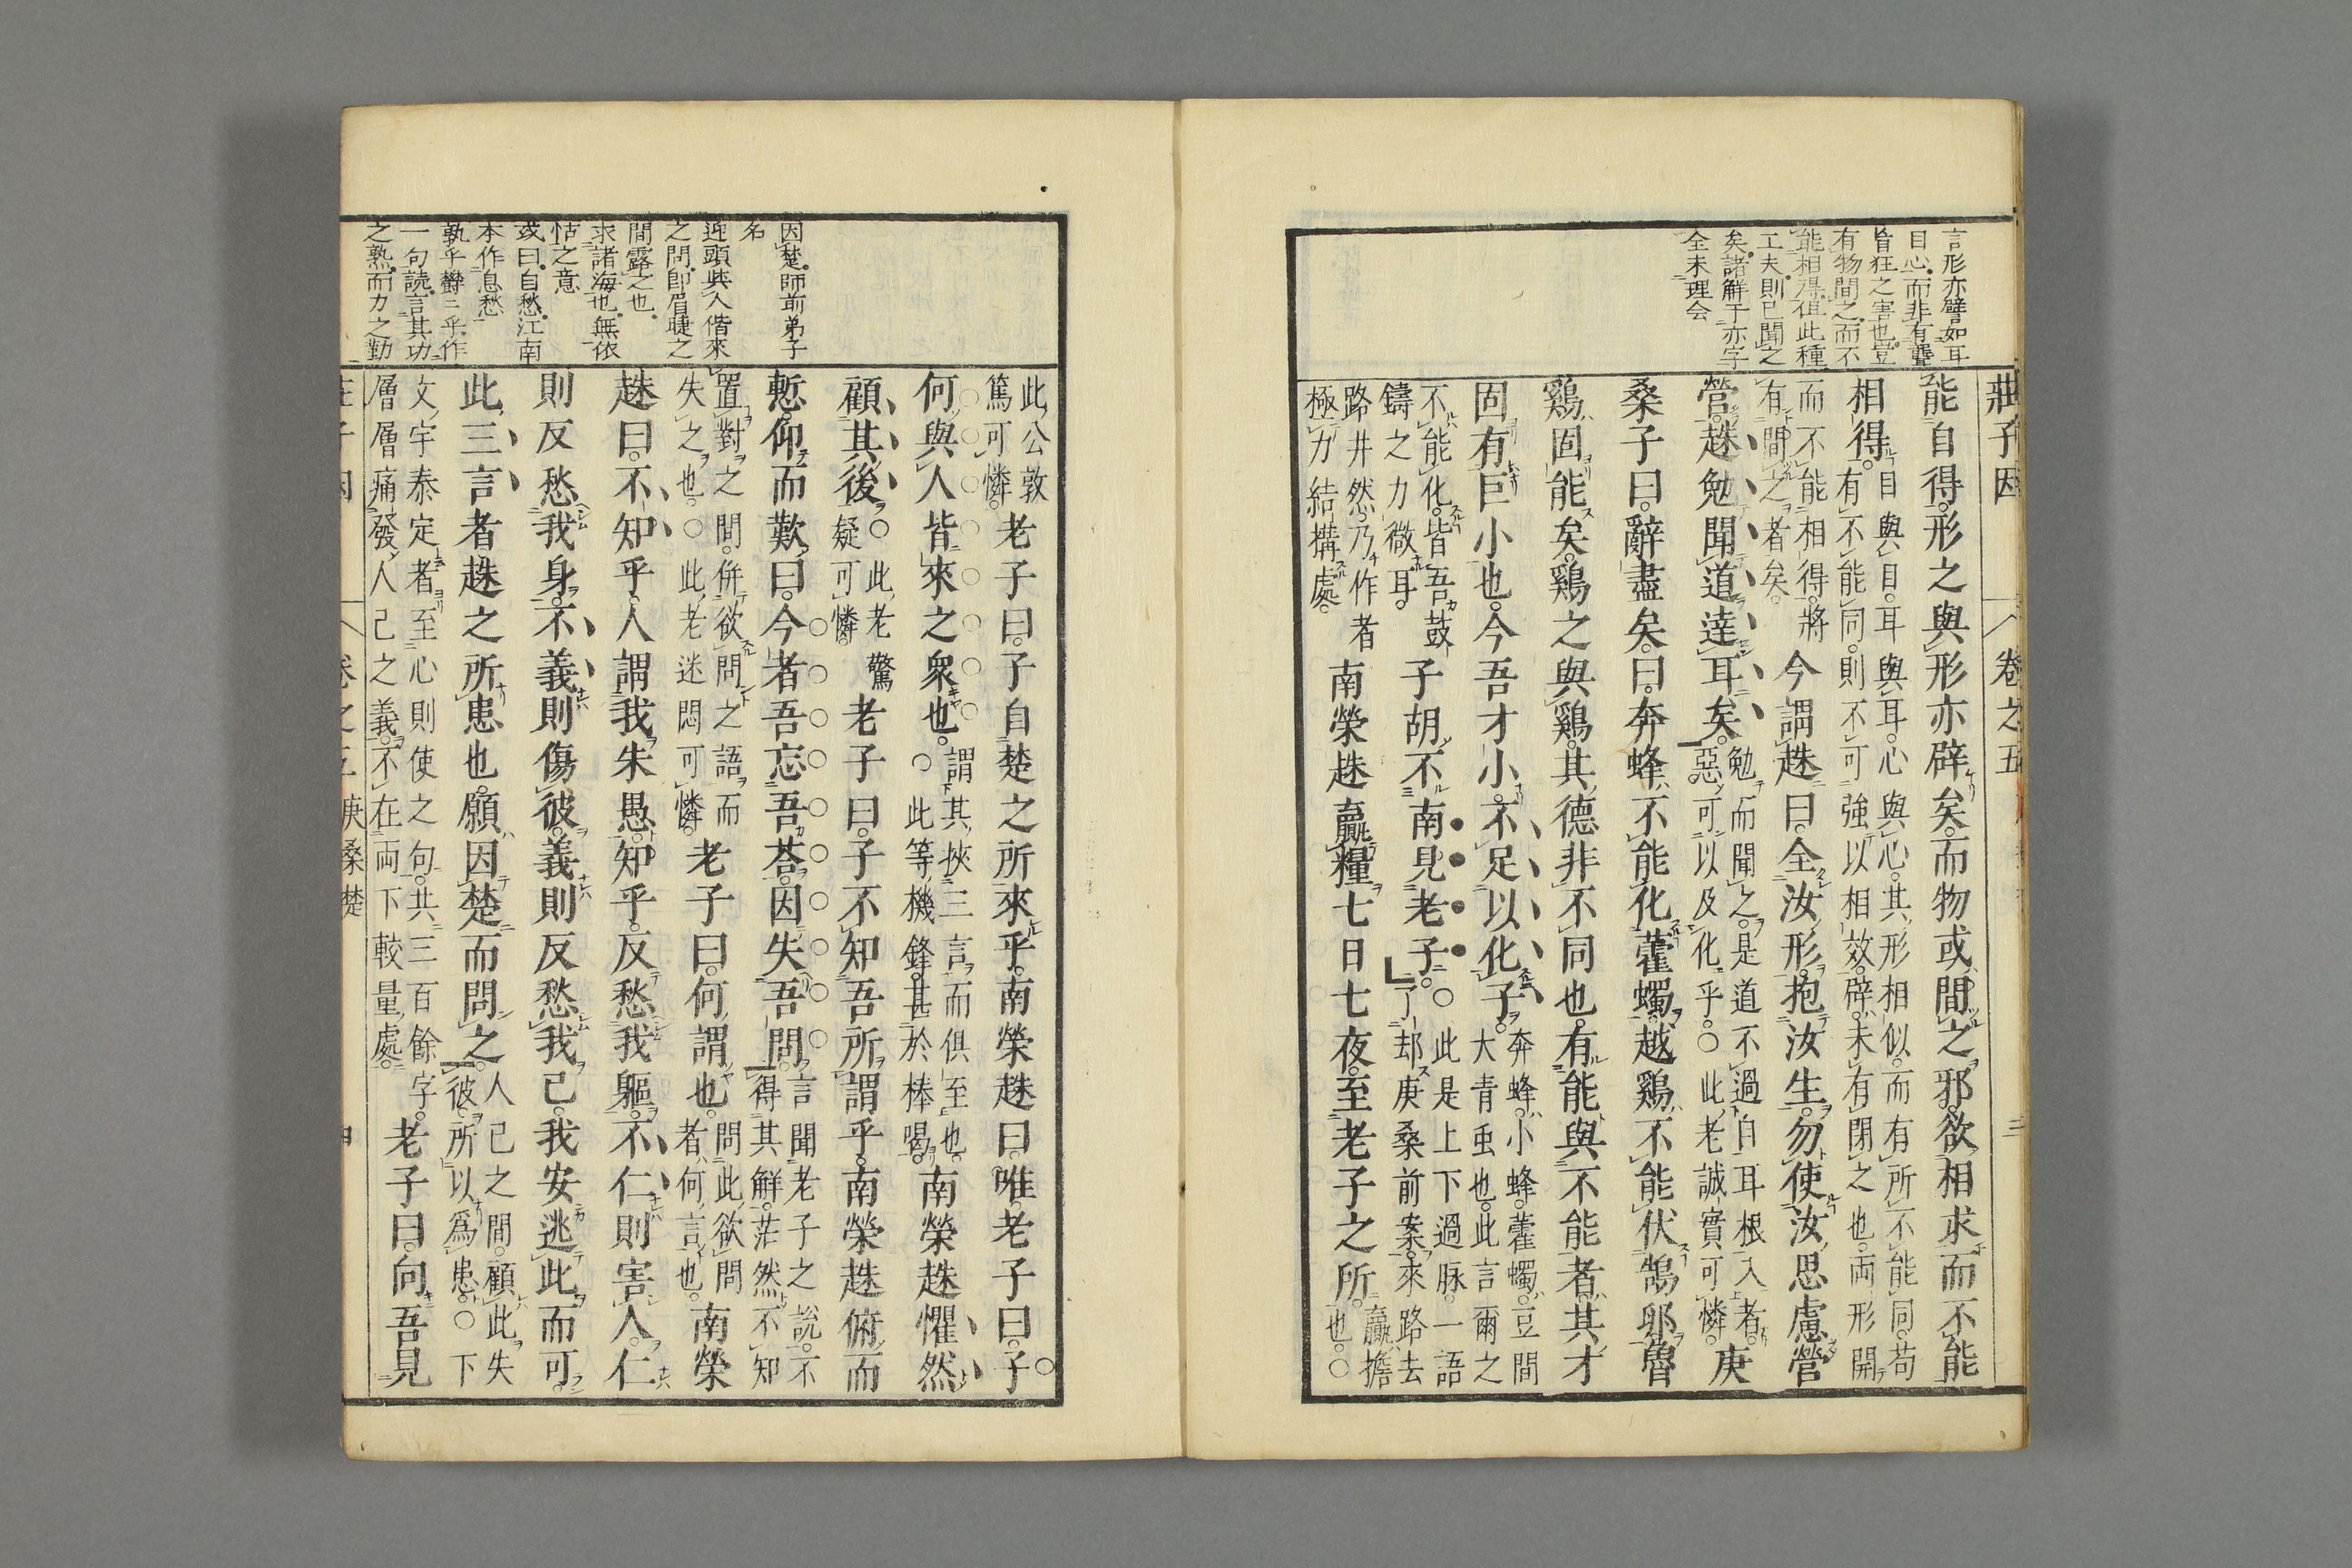 莊子因 卷之五 三
言形亦譬如耳
目心而非有聾
盲狂之害也豈
有物間之而不
能相得但此種
工夫則已聞之
矣諸解于亦字
全未理会
能自得。形之與形亦辟矣。而物或間之邪。欲相求而不能
相得。目與目。耳與耳。心與心。其形相似。而有所不能同。苟有不能同。則不可強以相效。辟。未有閉之也。両形開
而不能相得。將有間之者矣。今謂趎曰。全汝形。抱汝生。勿使汝思慮營
營。趎勉聞道達耳矣。勉而聞之。是道不過自耳根入者。惡可以及化乎。○此老誠實可憐。庚
桑子曰。辭盡矣。曰。奔蜂不能化藿蠋。越鷄不能伏鵠卵。魯
鷄固能矣。鷄之與鷄。其德非不同也。有能與不能者。其才
固有巨小也。今吾才小。不足以化子。奔蜂。小蜂。藿蠋。豆間大青虫也。此言爾之
不能化。皆吾鼓鑄之力微耳。子胡不南見老子。○此是上下過脉。一語了却庚桑前案。來路去
路井然。乃作者極力結搆處。南榮趎贏糧七日七夜。至老子之所。贏擔也。○
此公敦篤可憐。老子曰。子自楚之所來乎。南榮趎曰。唯。老子曰。子
何與人皆來之衆也。謂其挾三言而俱至也。○此等機鋒。甚於棒喝。南榮趎懼然
顧其後。○此老驚疑可憐。老子曰。子不知吾所謂乎。南榮趎俯而
慙。仰而歎曰。今者吾忘吾荅。因失吾問。言聞老子之說。不得其解。茫然不知
置對之間。併欲問之語而失之也。○此老迷悶可憐。老子曰。何謂也。問此欲問者何言也。南榮
趎曰。不知乎。人謂我朱愚。知乎。反愁我軀。不仁則害人。仁
則反愁我身。不義則傷彼。義則反愁我己。我安逃此而可。
此三言者。趎之所患也。願因楚而問之。人己之間。顧此失彼。所以為患。○下
文宇泰定者。至心則使之句。共三百餘字。層層痛發人己之義。不在両下較量處。老子曰。向吾見
因楚師前弟子
名
迎頭與人偕來
之問即眉睫之
間露之也
求諸海也無依
怙之意
或曰自愁江南
本作息愁
孰乎欝々乎作
一句読言其功
之熟而力之勤